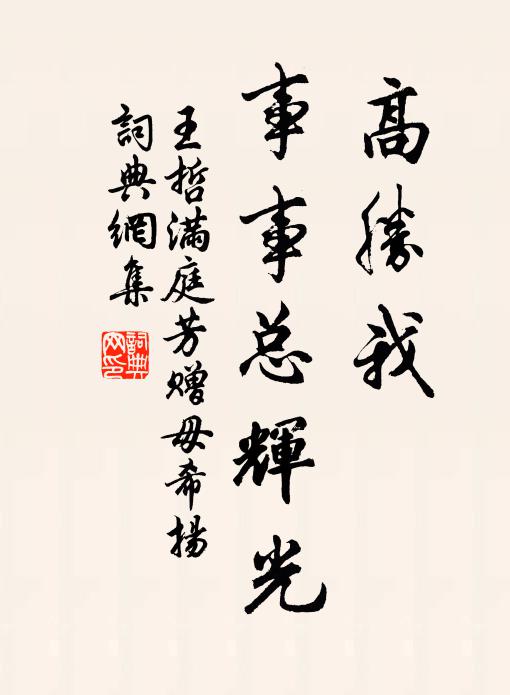 高勝我
事事总輝光
王哲满庭芳赠毋希揚
詞典網集
詞典网印